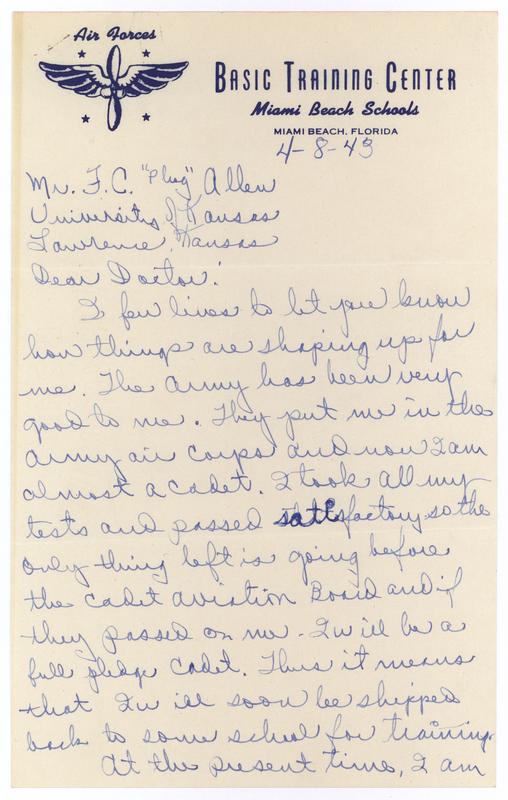 Air Forces
BASIC TRAINING CENTER
Miami Beach Schools
MIAMI BEACH, FLORIDA
4-8-43
Mr. F.C. "Phog" Allen
University of Kansas
Lawrence, Kansas
Dear Doctor:
A few lines to let you know
how things are shaping up for
me. The army has been very
good to me. They put me in the
army air corps and now I am
almost a cadet. I took all my
tests and passed satisfactory so the
only thing left is going before
the cadet aviation Board and if
they passed on me - I will be a
full pledge cadet. Thus it means
that I will soon be shipped
back to some school for training.
At the present time, I am